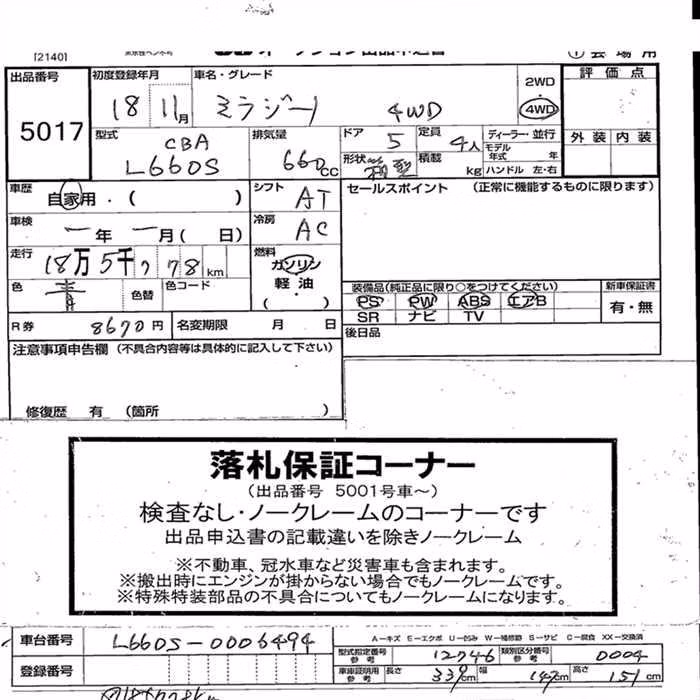 [2140]
出品番号 5017
初度登録年月 18 11月
車名・グレード ミラジーノ 4WD
2WD
4WD
評価点
外装 内装
型式 CBA L660S
排気量 660cc
ドア 5
定員 4人
ディーラー・並行
モデル年式 年
形状
積載 kg
ハンドル 左・右
車歴 自家用・( )
シフト AT
セールスポイント (正常に機能するものに限ります)
車検 ー年ー月( 日)
冷房 AC
走行 18万5千 km
燃料 ガソリン 軽油 ( )
色 青
色替
色コード
装備品(純正品に限り○をつけてください)
PS PW ABS エアB
SR ナビ TV
新車保証書 有・無
R券 8670円
名変期限 月 日
後日品
注意事項申告欄 (不具合内容等は具体的に記入して下さい)
修復歴 有 (箇所 )
落札保証コーナー
(出品番号 5001号車～)
検査なし・ノークレームのコーナーです
出品申込書の記載違いを除きノークレーム
※不動車、冠水車など災害車も含まれます。
※搬出時にエンジンが掛からない場合でもノークレームです。
※特殊特装部品の不具合についてもノークレームになります。
車台番号 L660S-0006494
A－キズ E－エクボ U－凹み W－補修跡 S－サビ C－腐食 XX－交換済
型式指定番号 参考 12746
類別区分番号 参考 0004
登録番号
車庫証明用 参考 長さ 339cm 幅 147cm 高さ 151cm